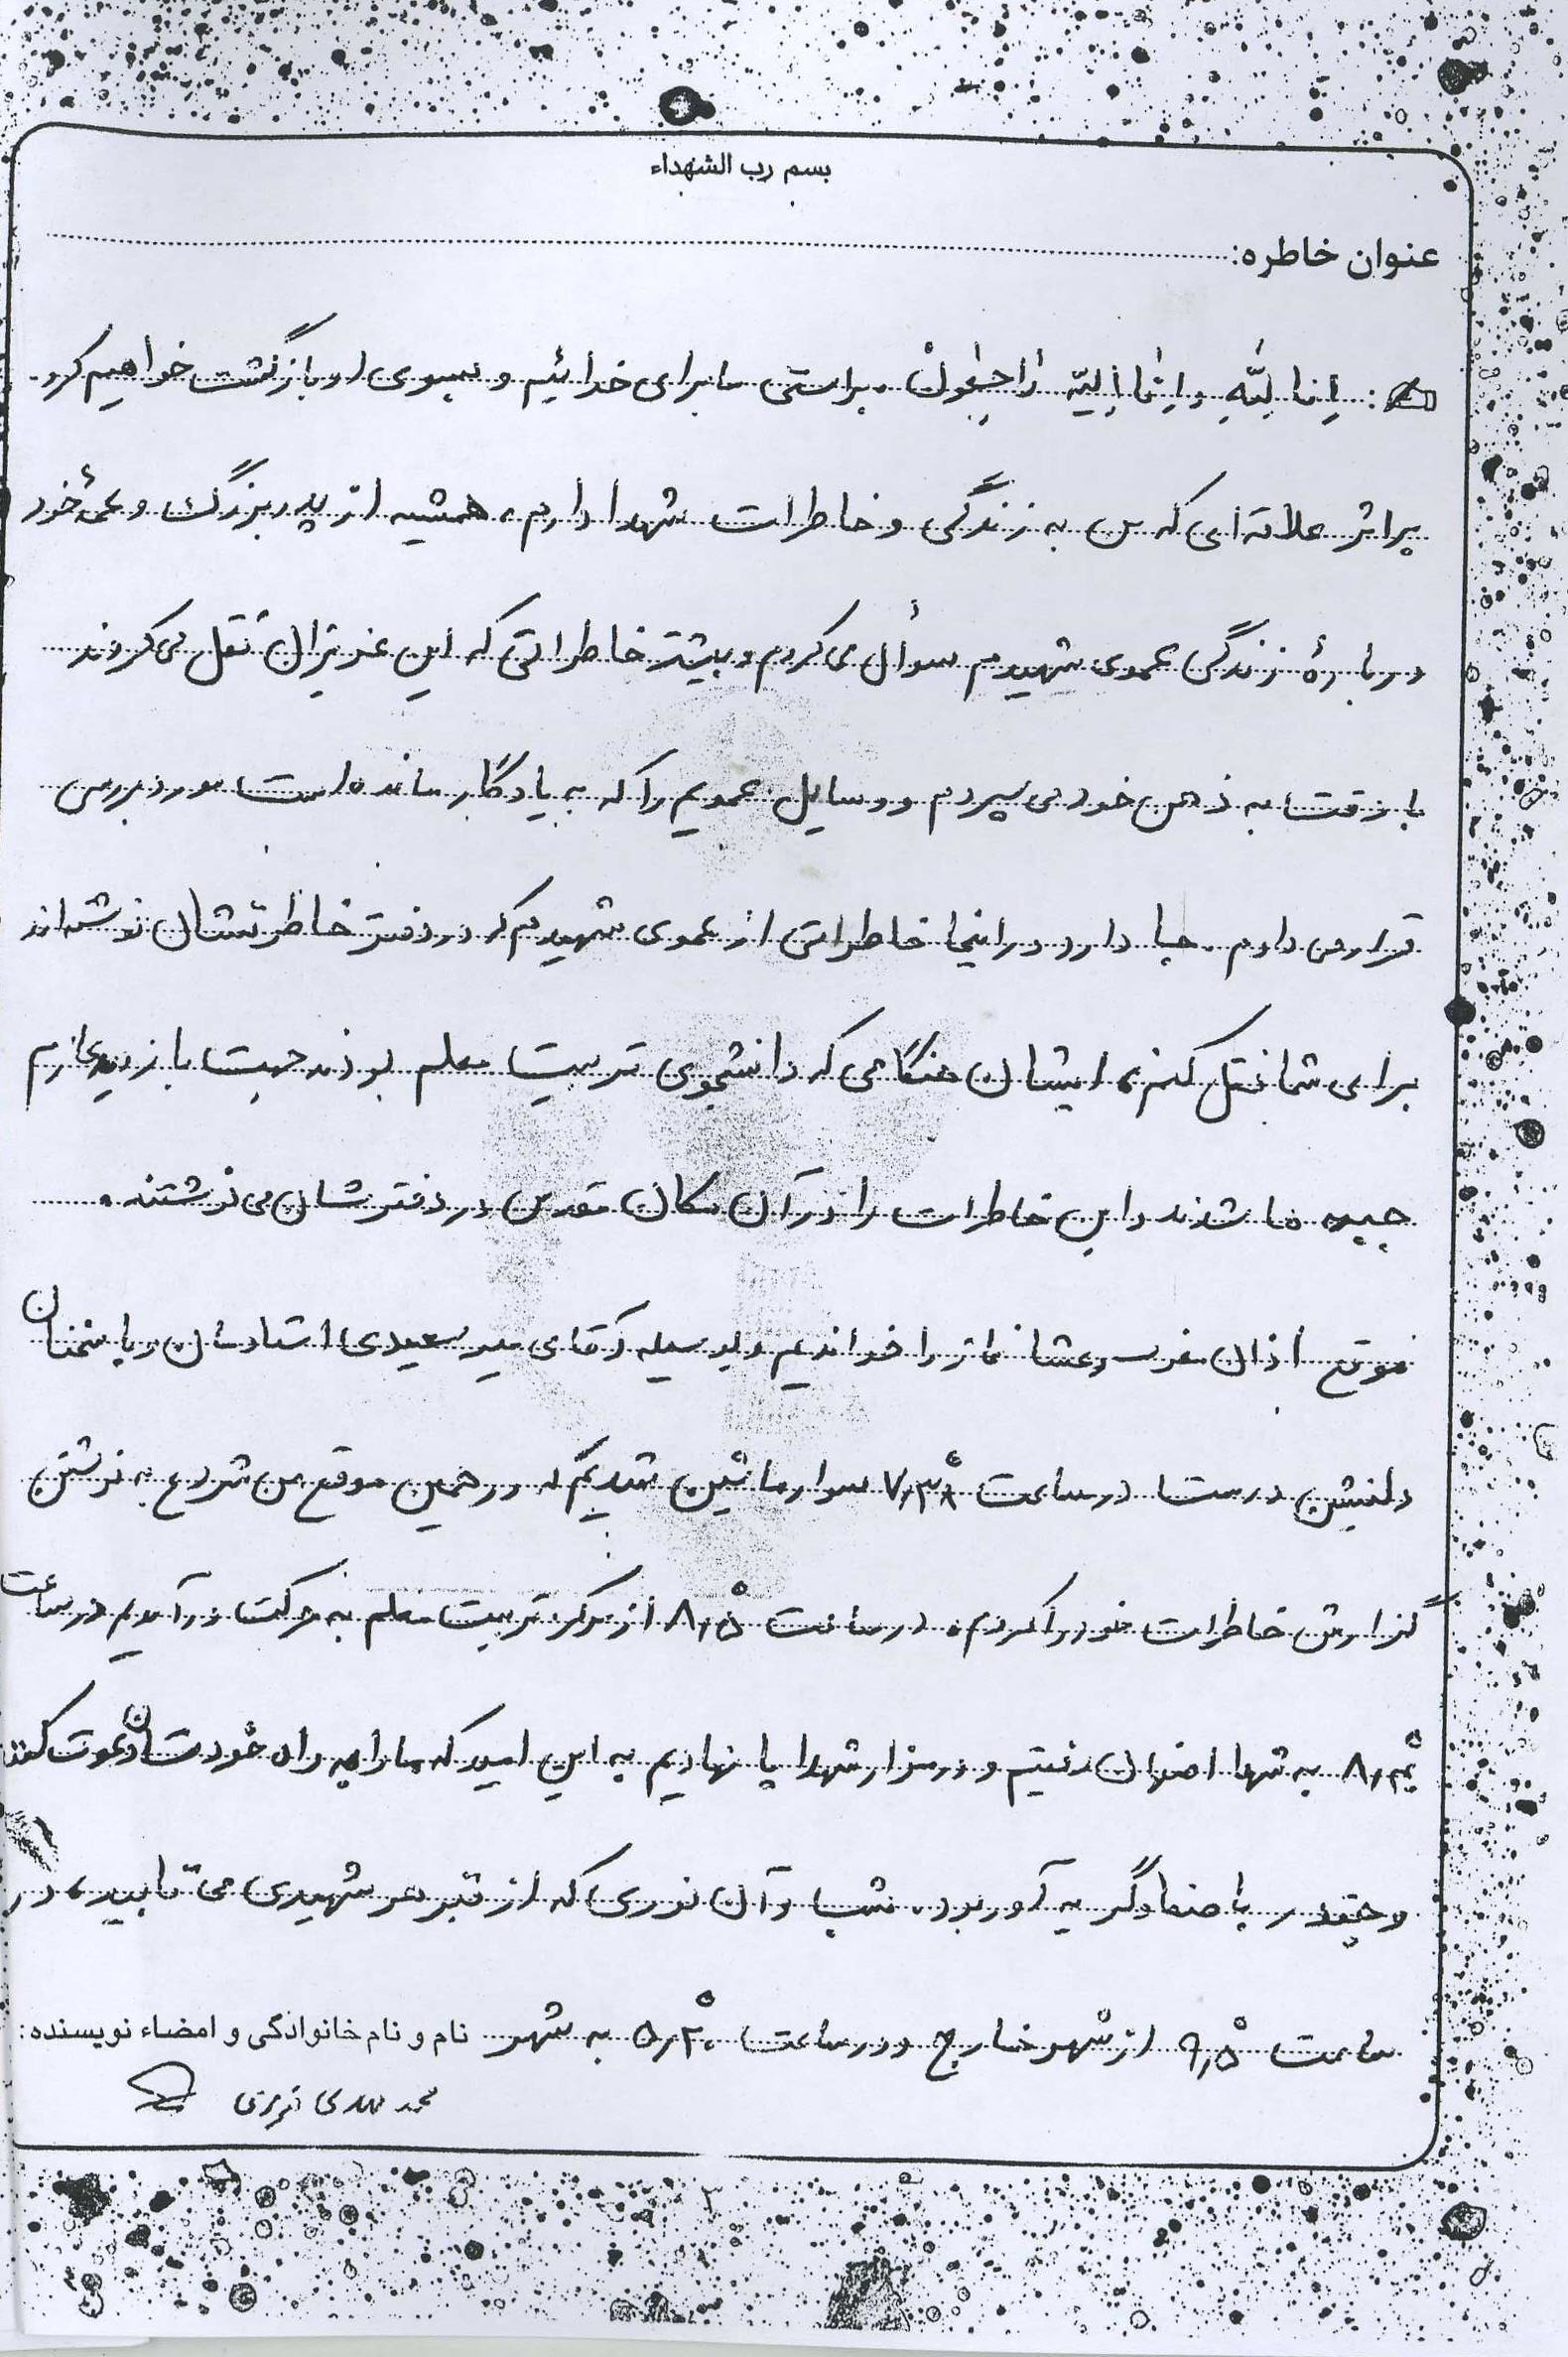 بسم رب الشهداء
عنوان خاطره:
: اِنا لِلّهِ و اِنّا اِلَیْهِ رٰاجِعُونْ . براستی ما برای خدائیم و بسوی او بازگشت خواهیم کرد.
براثر علاقه ای که من به زندگی و خاطرات شهدا دارم، همیشه از پدربزرگ و عمهٔ خود
دربارهٔ زندگی عموی شهیدم سوأل می کردم و بیشتر خاطراتی که این عزیزان نقل می کردند
با دقت به ذهن خود می سپردم و وسایل عمویم را که به یادگار مانده است مورد بررسی
قرار می دادم. جا دارد در اینجا خاطراتی از عموی شهیدم که در دفتر خاطرتشان نوشته اند
برای شما نقل کنم، ایشان هنگامی که دانشجوی تربیت معلم بودند جهت بازدید عازم
جبهه ها شدند و این خاطرات را در آن مکان مقدس در دفترشان می نوشتند.
موقع اذان مغرب و عشا نماز را خواندیم و بوسیله آقای میرسعیدی استادمان و با سخنان
دلنشین درست در ساعت ۷٫۳۸ سوار ماشین شدیم که در همین موقع من شروع به نوشتن
گزارش خاطرات خود را کردم. در ساعت ۸٫۵ از مرکز تربیت معلم به حرکت درآمدیم در ساعت
۸٫۳۰ به شهر رفتیم و در مزار شهدا پا نهادیم به این امید که ما را به راه خودتان دعوت کنند
و چقدر با صفا و گریه آور بود. شب و آن نوری که از قبر هر شهیدی می تابید، در
ساعت ۹٫۵ از شهر خارج و در ساعت ۵٫۲۰ به شهر نام و نام خانوادگی و امضاء نویسنده:
محمد مهدی